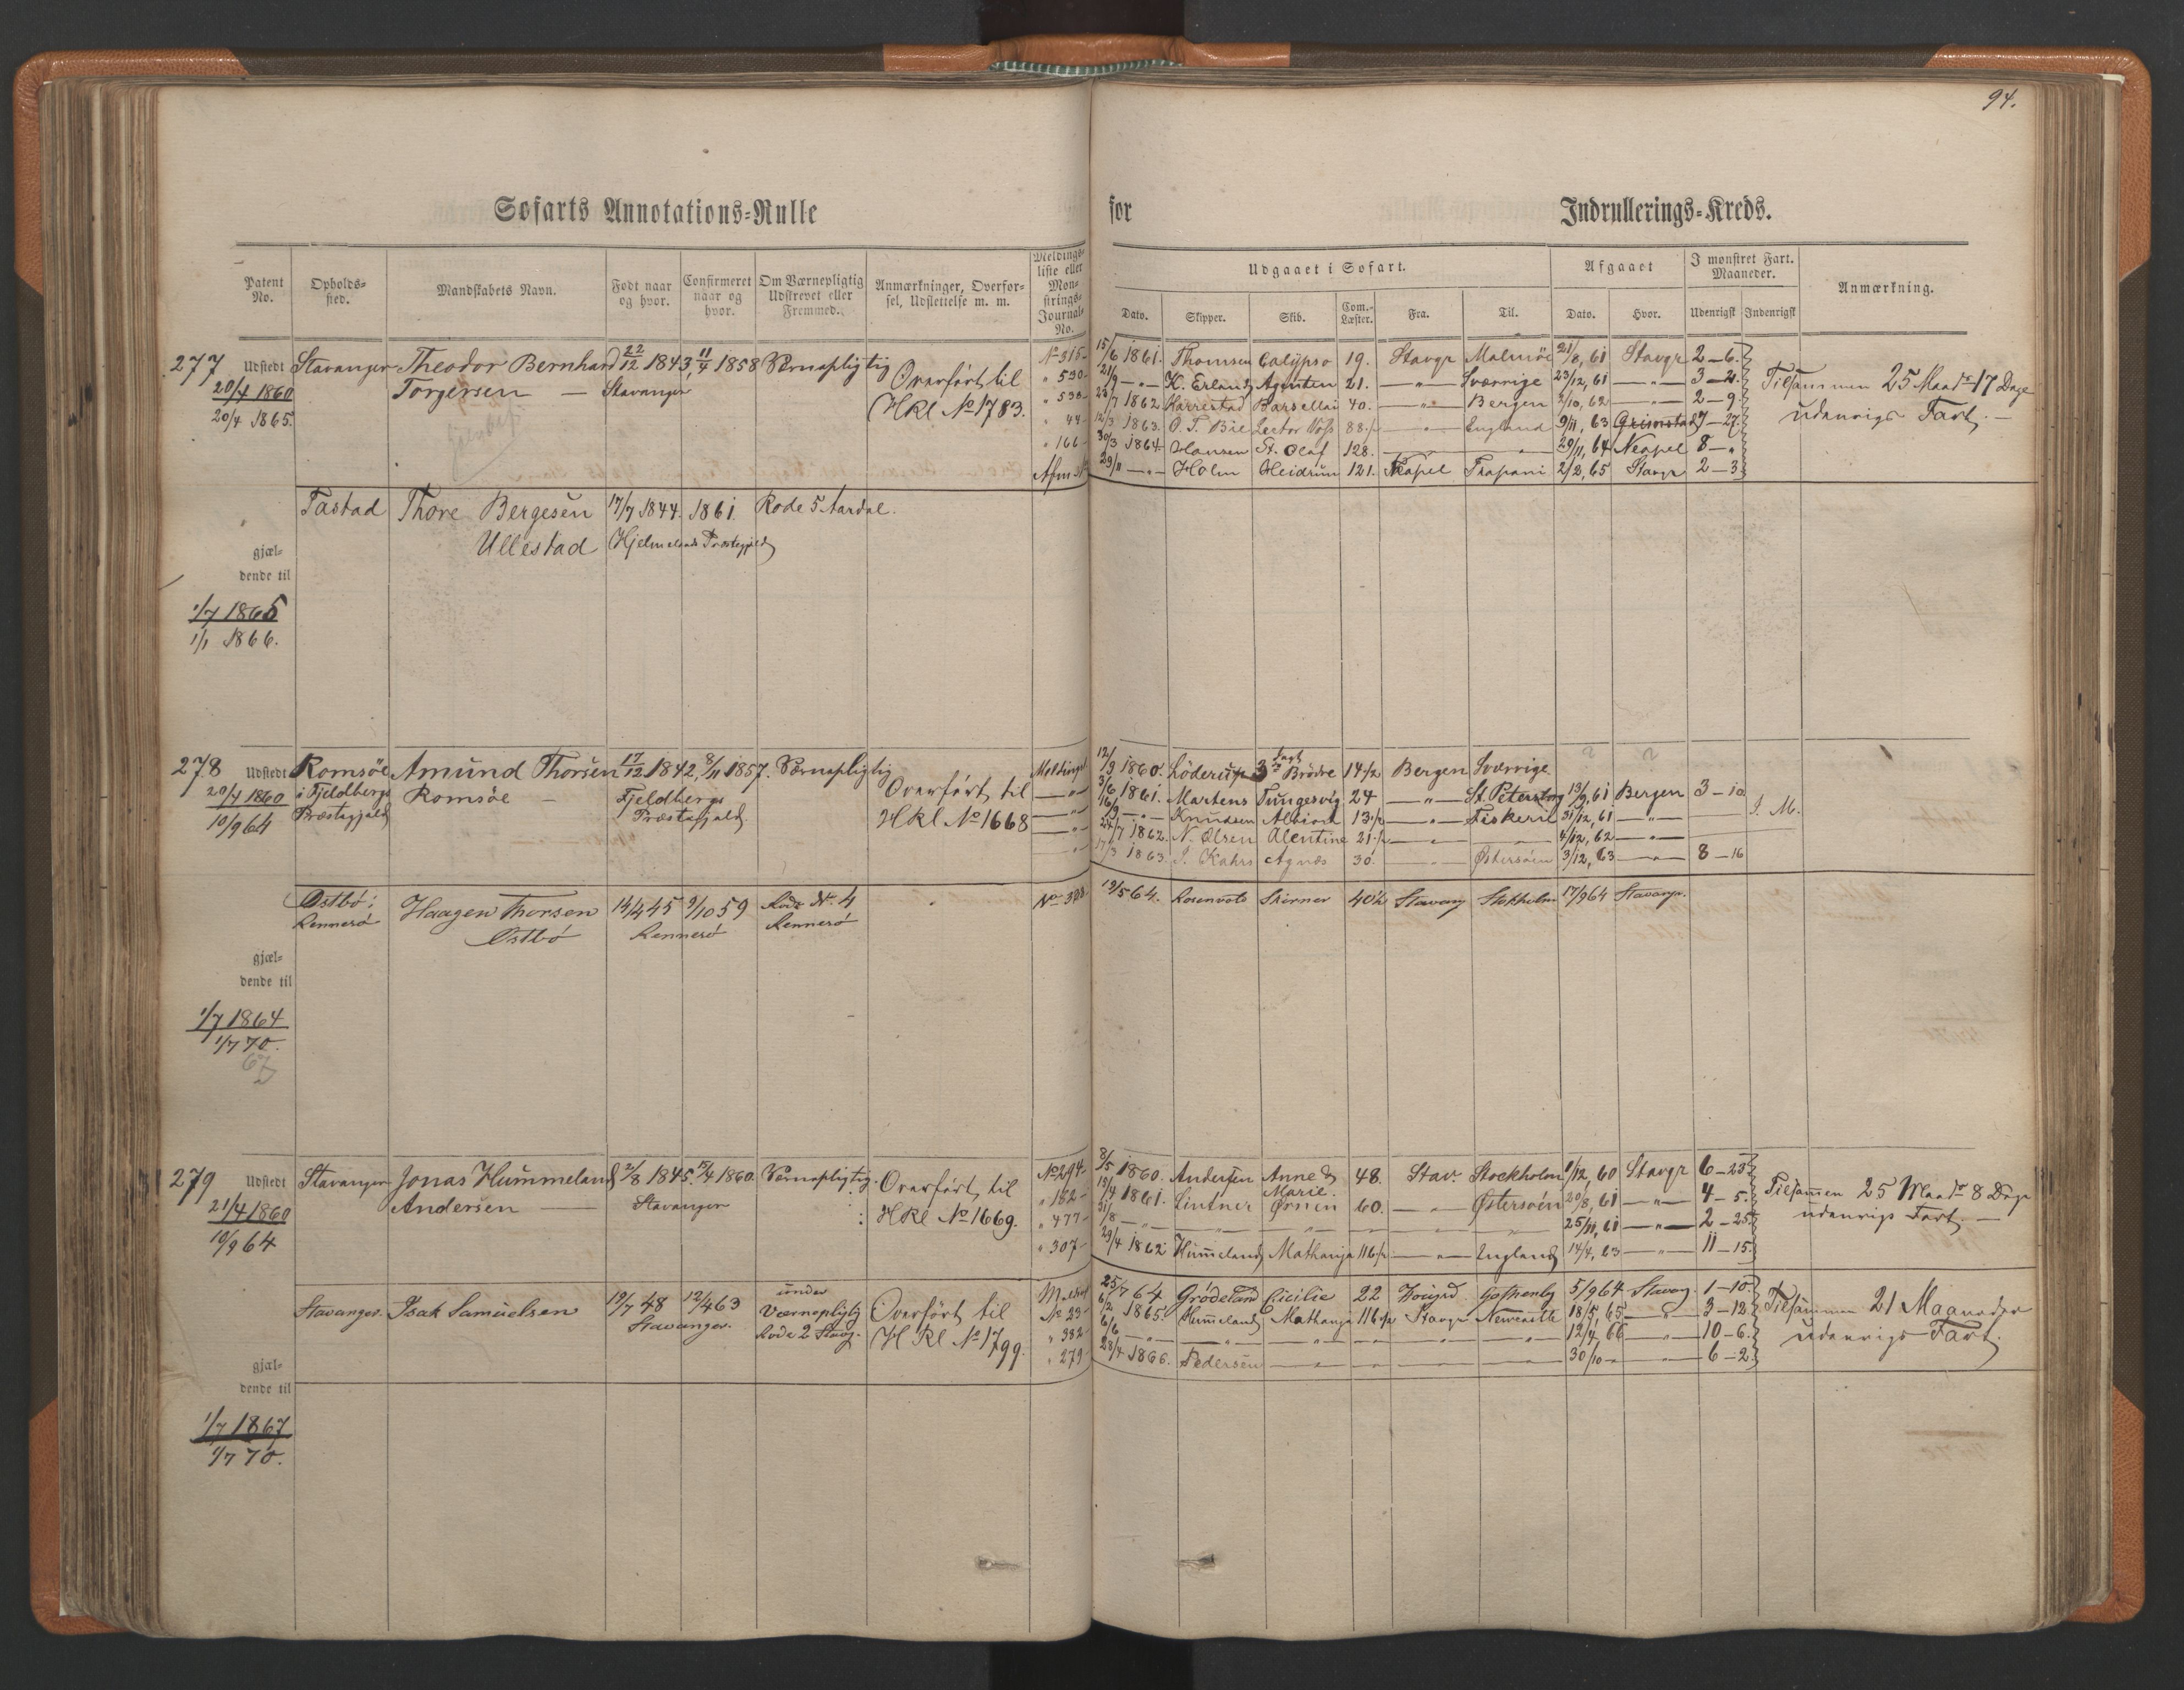 94.
Søfarts Annotations-Rulle for Indrullerings-Kreds.
Patent No.
Opholds-sted.
Mandskabets Navn.
Født naar og hvor.
Confirmeret naar og hvor.
Om Værnepligtig Udskrevet eller Fremmed.
Anmærkninger, Overfør-sel, Udslettelse m. m.
Meldings-liste eller Møn-strings-Journal-No.
Udgaaet i Søfart.
Dato. Skipper. Skib. Com.-Læster. Fra. Til.
Afgaaet
Dato. Hvor.
I mønstret Fart. Maaneder.
Udenrigsk Indenrigsk
Anmærkning.
277 Udstedt Stavanger Theodor Bernhard 22/12 1843, 11/4 1858 Værnepligtig
20/4 1860 Torgersen — Stavanger Overført til
20/4 1865. HRl No 1783.
No 315 15/6 1861. Thomsen Calypso 19. Stavgr Malmöe 21/8, 61 Stavgr 2–6.
" 530 21/9 — " — K. Erlands Agenten 21. — " — Sverrige 23/12, 61 — " — 3–2.
" 538 23/7 1862 Karrestad Barsellai 40. — " — Bergen 2/10, 62 — " — 2–9.
" 44 12/3 1863. O. T. Bie Lector Voss 88 — " — England 9/11, 63 Grimstad 7–27.
" 166 30/3 1864. Hansen St. Olaf 128. 29/11, 64 Neapel 8– "
29/11 — " — Holm Heidrun 121. Neapel Trapani 2/2, 65 Stavgr 2–3
Tilsammen 25 Maadr 17 Dage
udenrigs Fart. —
Tastad Thore Bergesen 17/7 1844. 1861. Rode 5 Aardal.
Ullestad Hjelmelands Præstegjeld
gjæl-
dende til
1/7 1865
1/1 1866.
278 Udstedt Romsöe Amund Thorsen 17/12 1842, 8/11 1857. Værnepligtig
20/4 1860 i Fjeldbergs Romsöe — Fjeldbergs Overført til
10/9 64 Præstegjeld Præstegjeld HRl No 1668
12/3 1860. Löderup 3de Brödre 14 1/2 Bergen Sverrige
3/6 1861. Martens Tungesvig 24 — " — St. Petersbog 13/9, 61 Bergen 3–10
16/9 — " — Knudsen 13 1/2 — " — Fiskeri 31/12, 61 — " —
24/7 1862. N. Olsen Alentine 21 1/2 4/12, 62 — " —
17/3 1863. J. Kahrs Agnes 30. — Østersöen 3/12, 63 — " — 8–16
I. M.
Østbö: Haagen Thorsen 14/4 45 9/10 59 Rode No 4
Rennesö Østbö Rennesö Rennesö
19/5 64. Rosenvold Skirner 40 1/2 Stavang Stokholm 17/9 64 Stavangr.
gjæl-
dende til
1/7 1864
1/7 70.
67
279 Udstedt Stavanger Jonas Hummeland 2/8 1845. 15/4 1860. Værnepligtig.
21/4 1860 Andersen — Stavanger Overført til
10/9 64 HRl No 1669.
No 294 8/5 1860. Andersen Anne & Marie. 48. Stavr Stockholm 1/12, 60 Stavgr 6–23
" 182 19/4 1861. Lintner Ørnen 60. — " — Østersöen 20/8, 61 — " — 4–5.
" 477 31/8 — " — 25/11, 61 — " — 2–25
" 307 29/4 1862 Hummeland Mathanja 116 1/2 — " — England 14/4, 63 — " — 11–15.
Tilsammen 25 Maadr 8 Dage
udenrigs Fart. —
Stavanger. Isak Samuelsen 19/7 48 12/4 63 under
Stavanger. Værnepligtg
Rode 2 Stavg.
Overført til
HRl No 1799.
25/7 64 Grödeland Cicilie 22 Gothenbg 5/9 64 Stavag. 1–10
No 29 6/2 1865. Hummeland Mathanja 116 1/2 Stavgr Newcastle 18/5, 65 — " — 3–12
" 382 6/6 — " — 12/4, 66 — " — 10–6.
" 279 28/4 1866. Pedersen 30/10 — " — 6–2
Tilsammen 21 Maaneder
udenrigs Fart.
gjæl-
dende til
1/7 1867
1/7 70.